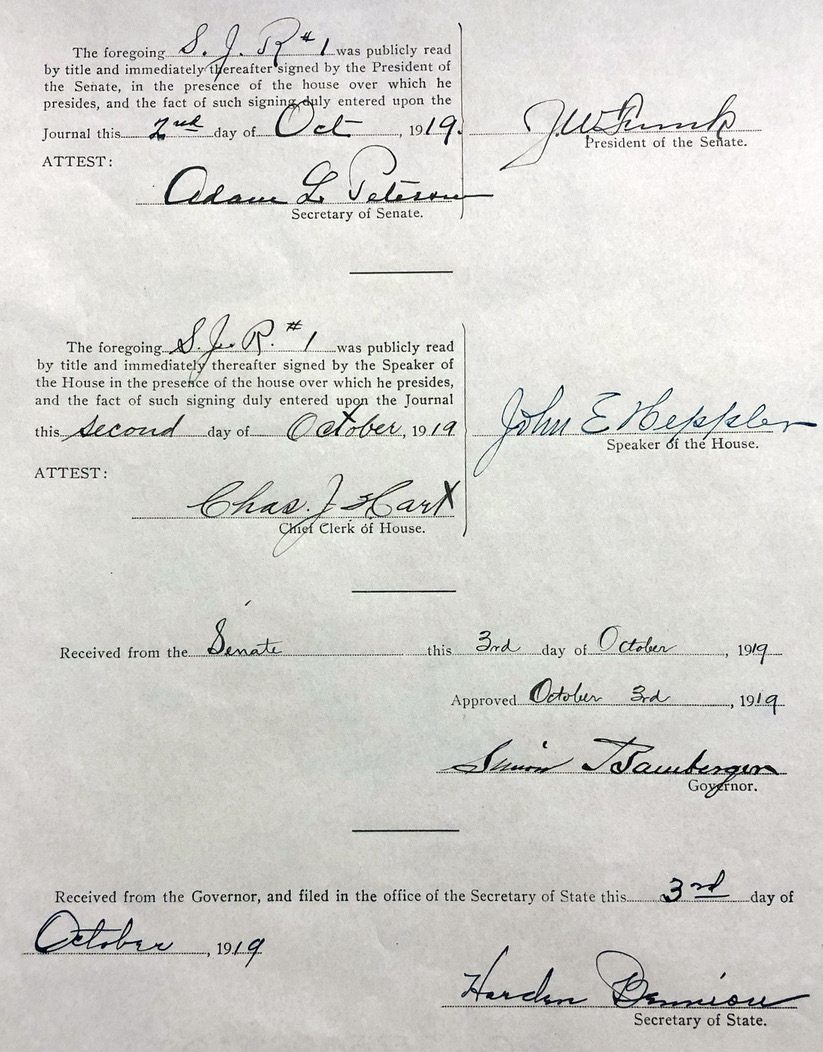 The foregoing S. J. R #1 was publicly read
by title and immediately thereafter signed by the President of
the Senate, in the presence of the house over which he
presides, and the fact of such signing duly entered upon the
Journal this 2nd day of Oct, 1919.
J.W. Funk
President of the Senate.
ATTEST:
Adam L Peterson
Secretary of Senate.
The foregoing S. J. R. #1 was publicly read
by title and immediately thereafter signed by the Speaker of
the House in the presence of the house over which he presides,
and the fact of such signing duly entered upon the Journal
this second day of October, 1919
John E Heppler
Speaker of the House.
ATTEST:
Chas. J. Hart
Chief Clerk of House.
Received from the Senate this 3rd day of October, 1919
Approved October 3rd, 1919
Simon Bamberger
Governor.
Received from the Governor, and filed in the office of the Secretary of State this 3rd day of
October, 1919
Harden Bennion
Secretary of State.